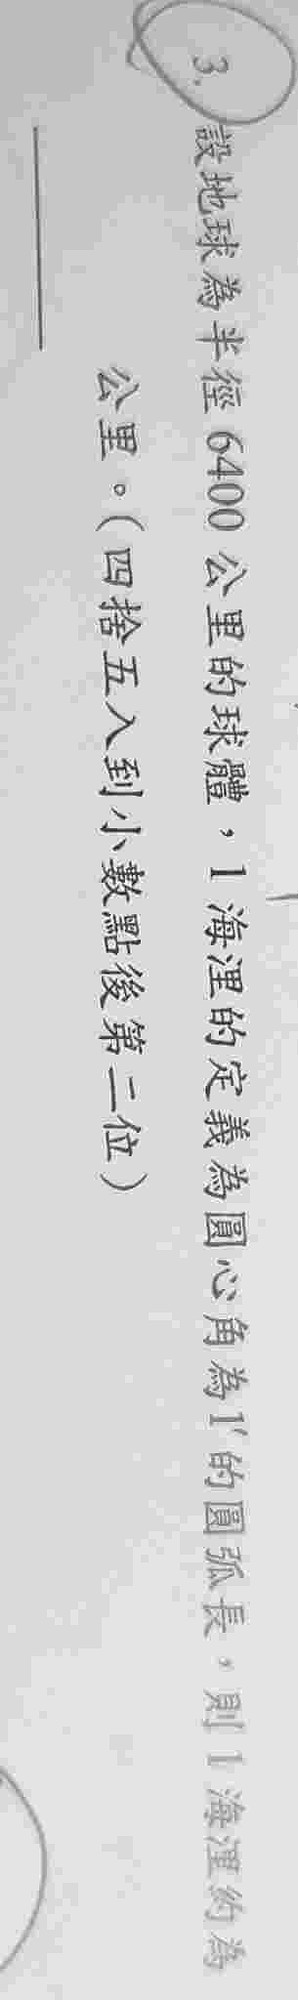 3. 設地球為半徑 6400 公里的球體，1 海浬的定義為圓心角為1′的圓弧長，則 1 海浬約為
公里。(四捨五入到小數點後第二位)